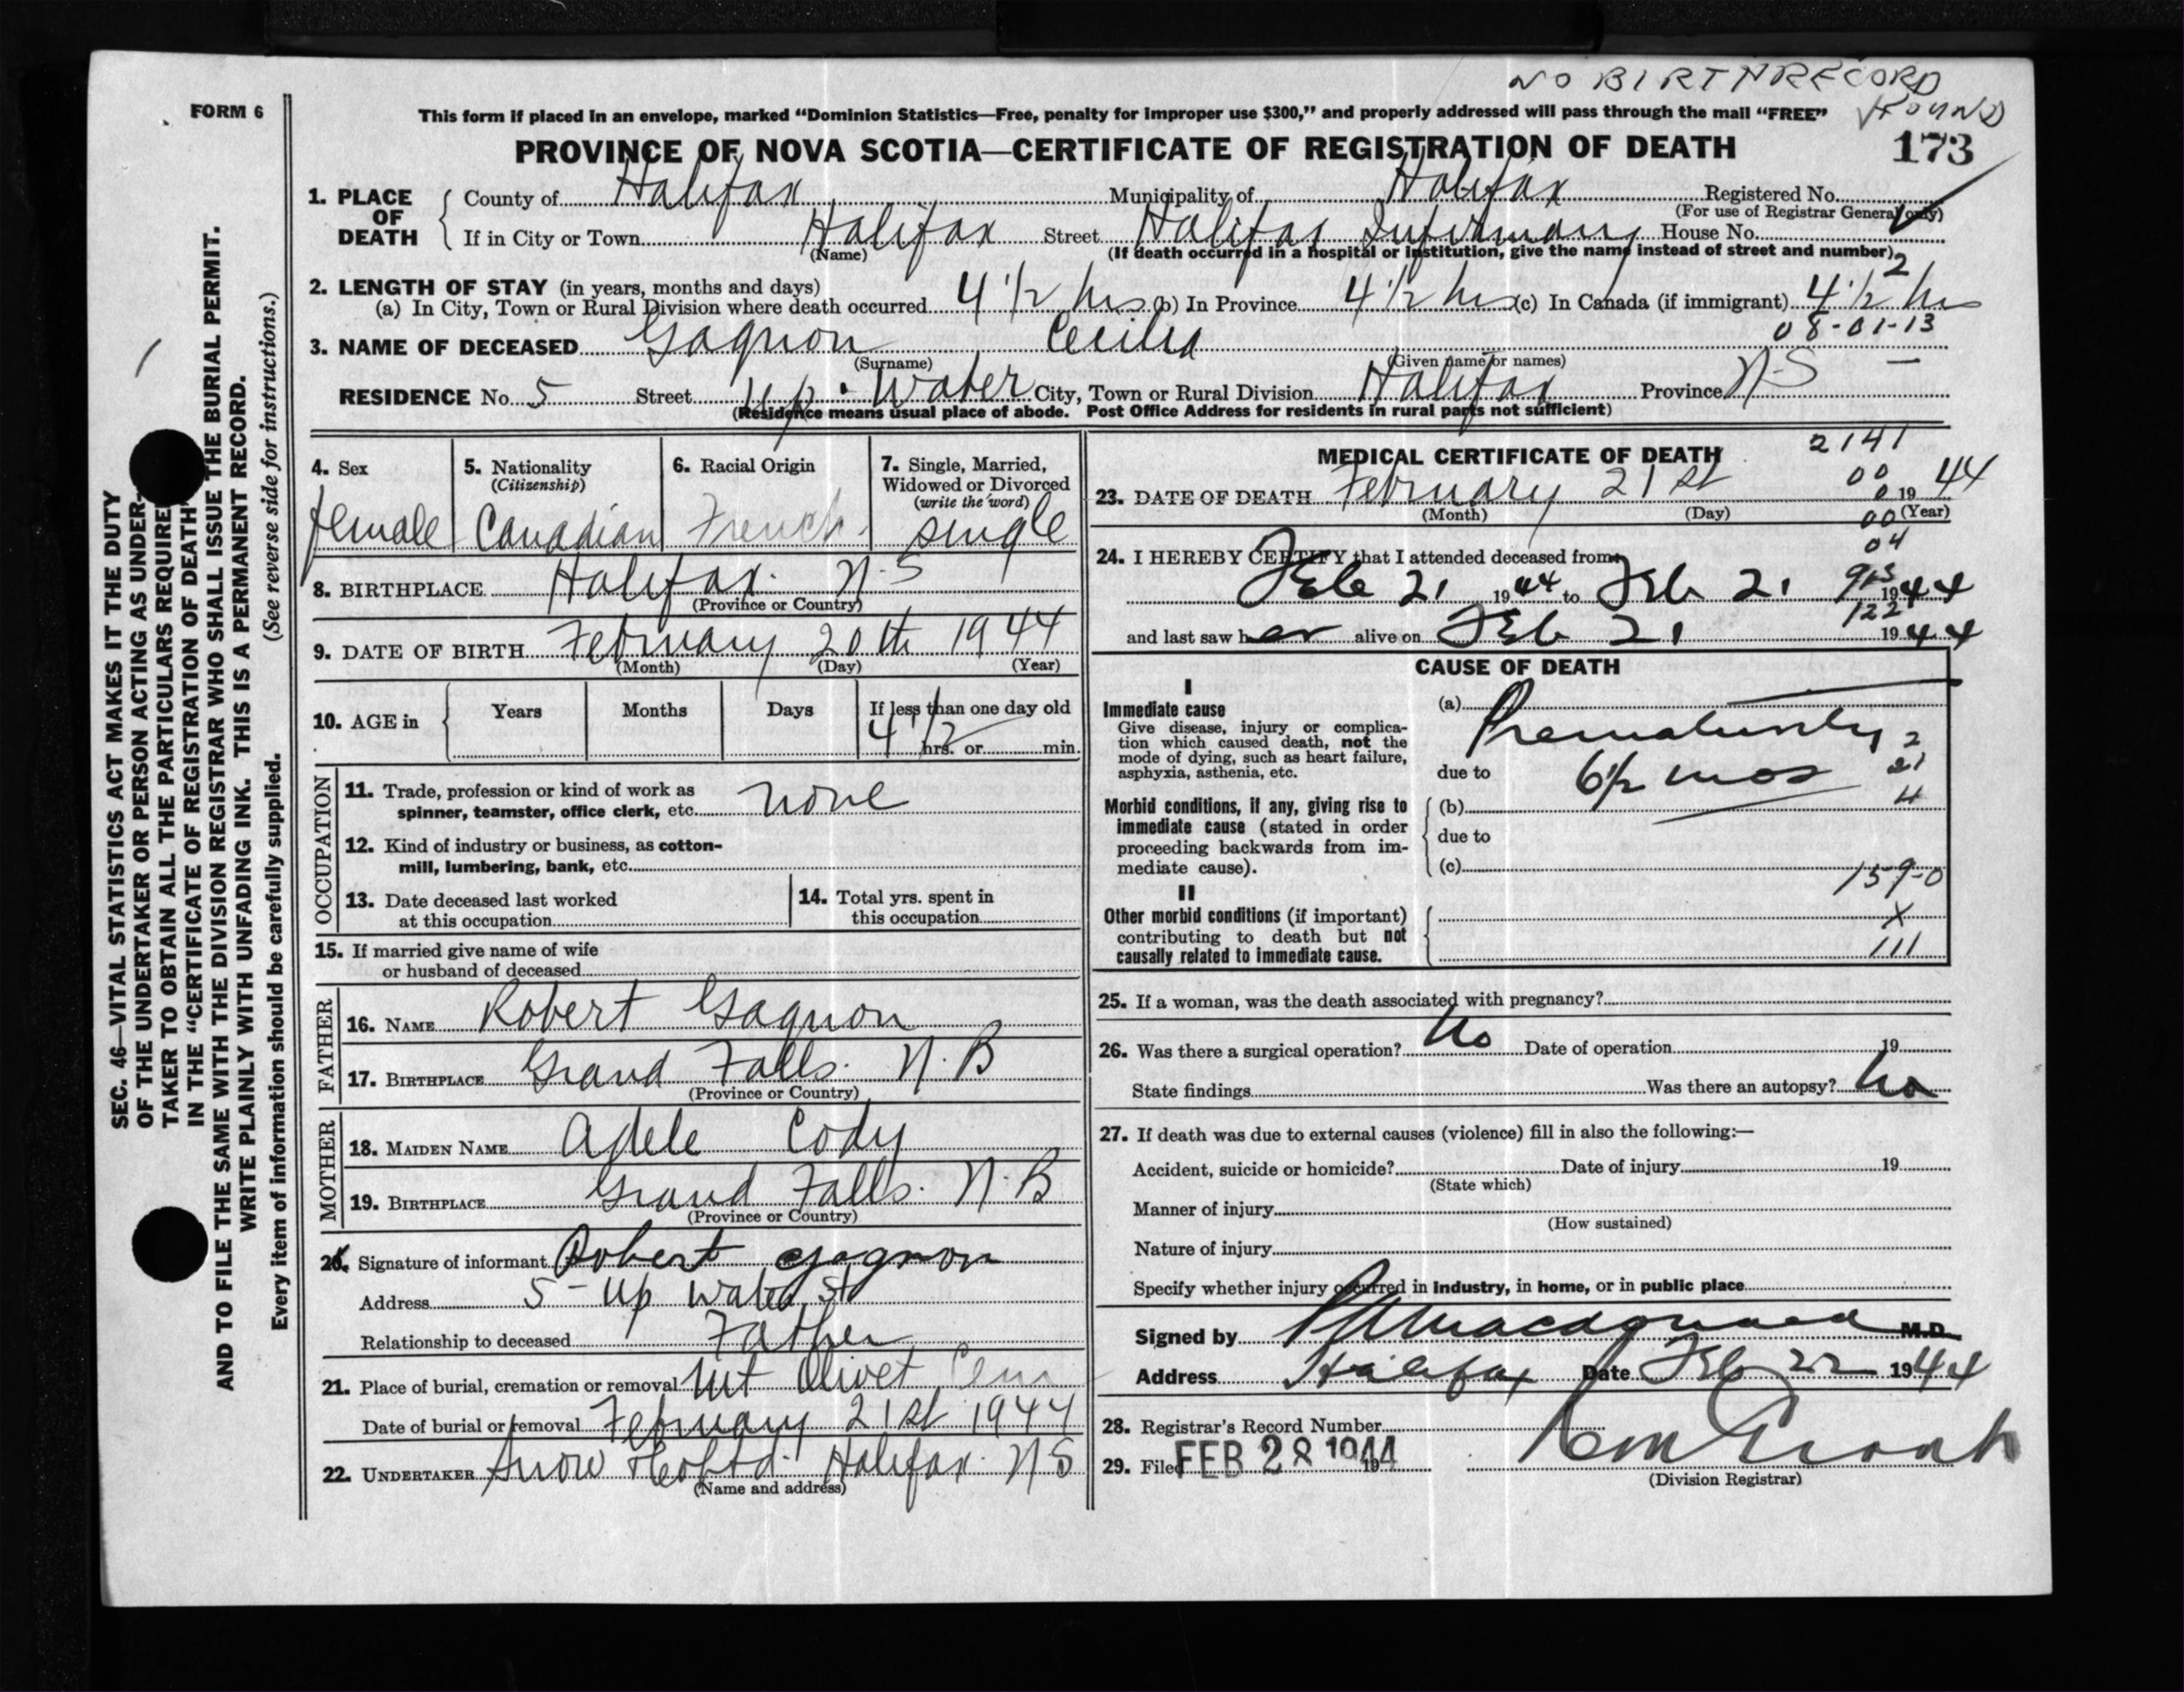 NO BIRTH RECORD
FOUND
FORM 6
This form if placed in an envelope, marked "Dominion Statistics—Free, penalty for improper use $300," and properly addressed will pass through the mail "FREE"
PROVINCE OF NOVA SCOTIA—CERTIFICATE OF REGISTRATION OF DEATH 173
1. PLACE OF DEATH { County of Halifax Municipality of Halifax Registered No.
(For use of Registrar General only)
If in City or Town Halifax Street Halifax Infirmary House No.
(Name) (If death occurred in a hospital or institution, give the name instead of street and number)
2
2. LENGTH OF STAY (in years, months and days)
(a) In City, Town or Rural Division where death occurred 4 1/2 hrs (b) In Province 4 1/2 hrs (c) In Canada (if immigrant) 4 1/2 hrs
08-01-13
3. NAME OF DECEASED Gagnon Cecilia
(Surname) (Given name or names)
RESIDENCE No. 5 Street Up. Water City, Town or Rural Division Halifax Province N-S —
(Residence means usual place of abode. Post Office Address for residents in rural parts not sufficient)
4. Sex
female
5. Nationality
(Citizenship)
Canadian
6. Racial Origin
French
7. Single, Married,
Widowed or Divorced
(write the word)
single
8. BIRTHPLACE Halifax. N-S
(Province or Country)
9. DATE OF BIRTH February 20th 1944
(Month) (Day) (Year)
10. AGE in { Years Months Days If less than one day old
4 1/2 hrs. or min.
OCCUPATION
11. Trade, profession or kind of work as
spinner, teamster, office clerk, etc. none
12. Kind of industry or business, as cotton-
mill, lumbering, bank, etc.
13. Date deceased last worked
at this occupation
14. Total yrs. spent in
this occupation
15. If married give name of wife
or husband of deceased
FATHER
16. NAME Robert Gagnon
17. BIRTHPLACE Grand Falls. N.B
(Province or Country)
MOTHER
18. MAIDEN NAME Adele Cody
19. BIRTHPLACE Grand Falls. N.B
(Province or Country)
20. Signature of informant Robert Gagnon
Address 5 - Up Water St
Relationship to deceased Father
21. Place of burial, cremation or removal Mt Olivet Cem
Date of burial or removal February 21st 1944
22. UNDERTAKER Snow & Co Ltd. Halifax. N-S
(Name and address)
MEDICAL CERTIFICATE OF DEATH
2141
00
0
00
04
915
122
23. DATE OF DEATH February 21st 19 44
(Month) (Day) (Year)
24. I HEREBY CERTIFY that I attended deceased from:
Feb 21 1944 to Feb 21 1944
and last saw her alive on Feb 21 1944
CAUSE OF DEATH
I
Immediate cause
Give disease, injury or complica-
tion which caused death, not the
mode of dying, such as heart failure,
asphyxia, asthenia, etc.
(a) Prematurity
due to 6 1/2 mos
2
21
4
Morbid conditions, if any, giving rise to
immediate cause (stated in order
proceeding backwards from im-
mediate cause).
(b)
due to
(c)
159-0
II
Other morbid conditions (if important)
contributing to death but not
causally related to immediate cause.
X
111
25. If a woman, was the death associated with pregnancy?
26. Was there a surgical operation? No Date of operation 19
State findings Was there an autopsy? No
27. If death was due to external causes (violence) fill in also the following:—
Accident, suicide or homicide? Date of injury 19
(State which)
Manner of injury
(How sustained)
Nature of injury
Specify whether injury occurred in industry, in home, or in public place
Signed by M.D.
Address Halifax Date Feb 22 1944
28. Registrar's Record Number
29. Filed FEB 28 1944 19
(Division Registrar)
SEC. 46—VITAL STATISTICS ACT MAKES IT THE DUTY
OF THE UNDERTAKER OR PERSON ACTING AS UNDER-
TAKER TO OBTAIN ALL THE PARTICULARS REQUIRED
IN THE "CERTIFICATE OF REGISTRATION OF DEATH"
AND TO FILE THE SAME WITH THE DIVISION REGISTRAR WHO SHALL ISSUE THE BURIAL PERMIT.
WRITE PLAINLY WITH UNFADING INK. THIS IS A PERMANENT RECORD.
Every item of information should be carefully supplied. (See reverse side for instructions.)